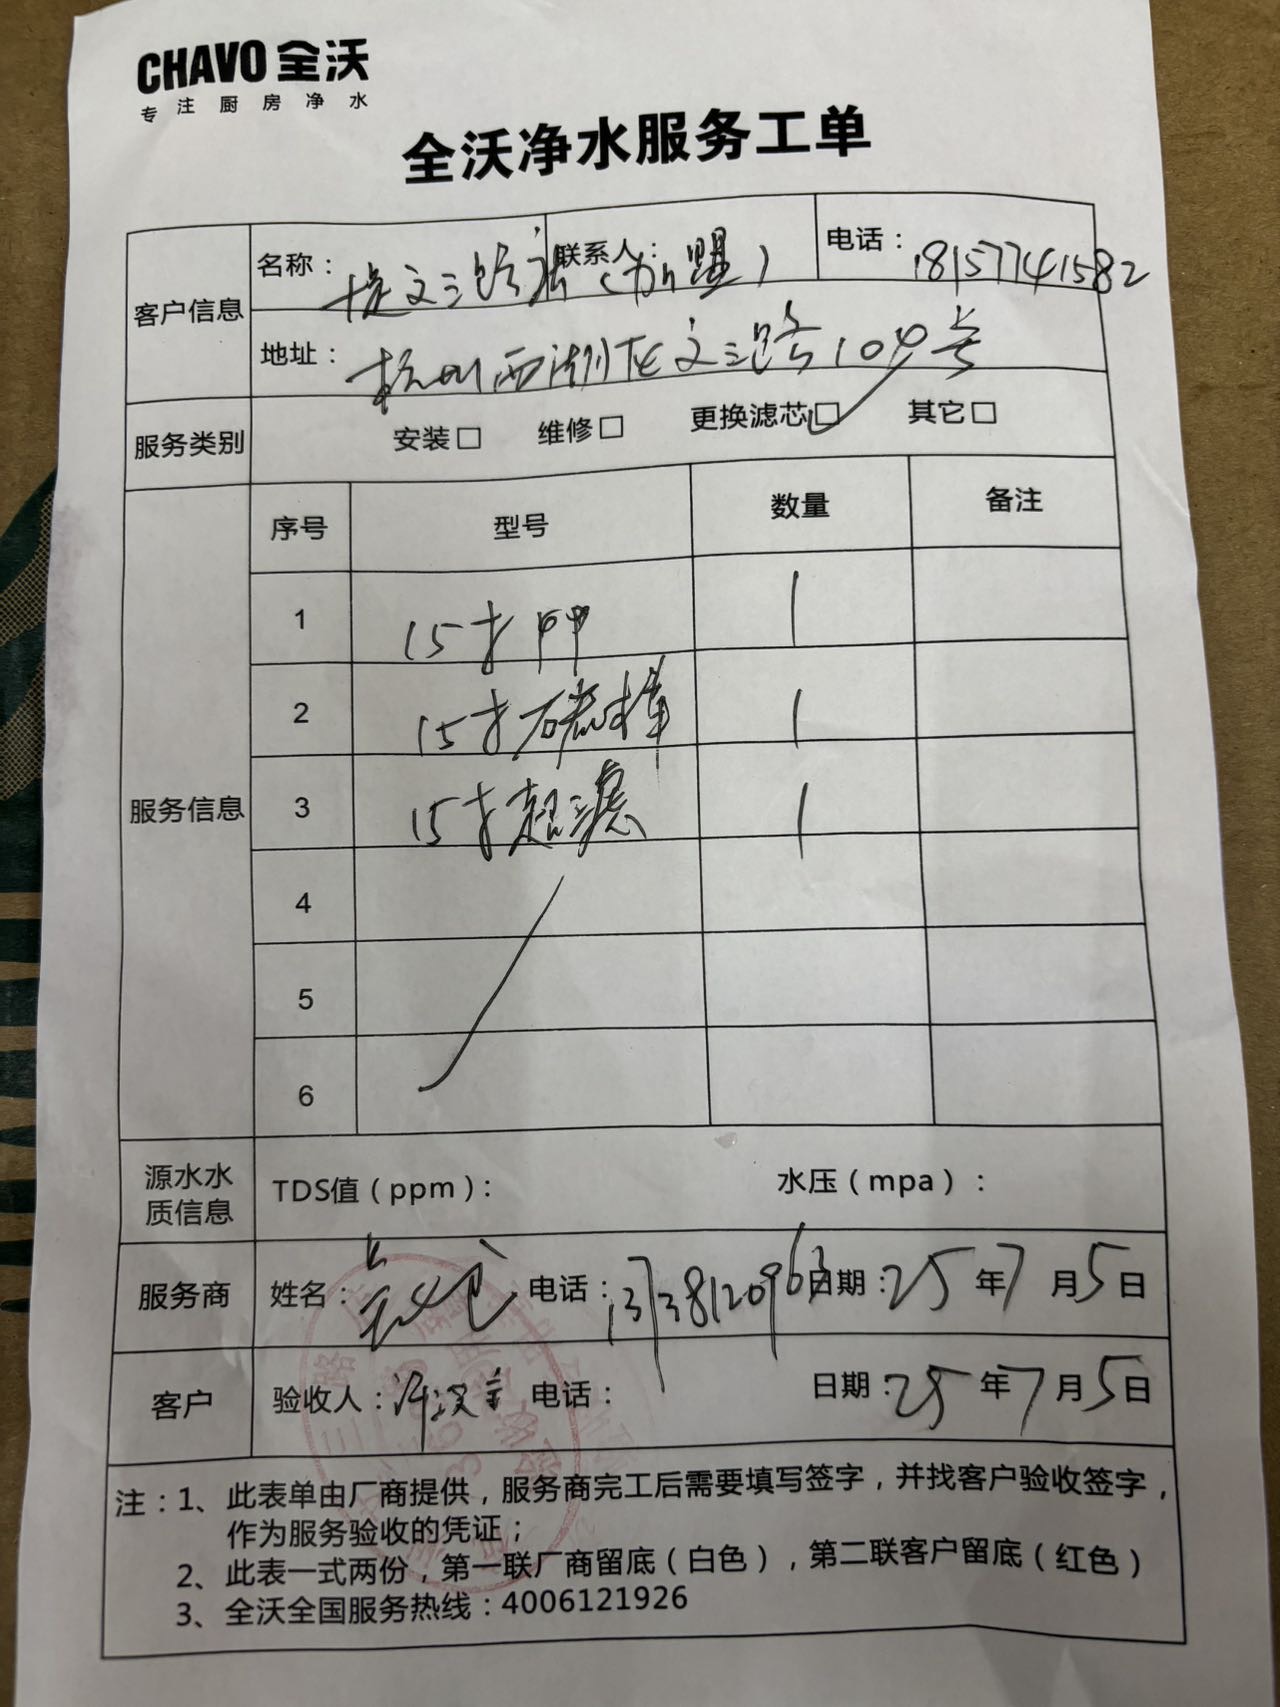 CHAVO 全沃
专注厨房净水
全沃净水服务工单
客户信息 名称： 文三路店（加盟） 联系人： 电话：18157741582
地址：杭州西湖区文三路104号
服务类别 安装□ 维修□ 更换滤芯□✓ 其它□
服务信息 序号 型号 数量 备注
1 15寸PP 1
2 15寸碳棒 1
3 15寸超滤 1
4
5
6
源水水质信息 TDS值（ppm）： 水压（mpa）：
服务商 姓名： 电话：13738120963 日期：25年7月5日
客户 验收人： 电话： 日期：25年7月5日
注：1、此表单由厂商提供，服务商完工后需要填写签字，并找客户验收签字，
作为服务验收的凭证；
2、此表一式两份，第一联厂商留底（白色），第二联客户留底（红色）
3、全沃全国服务热线：4006121926